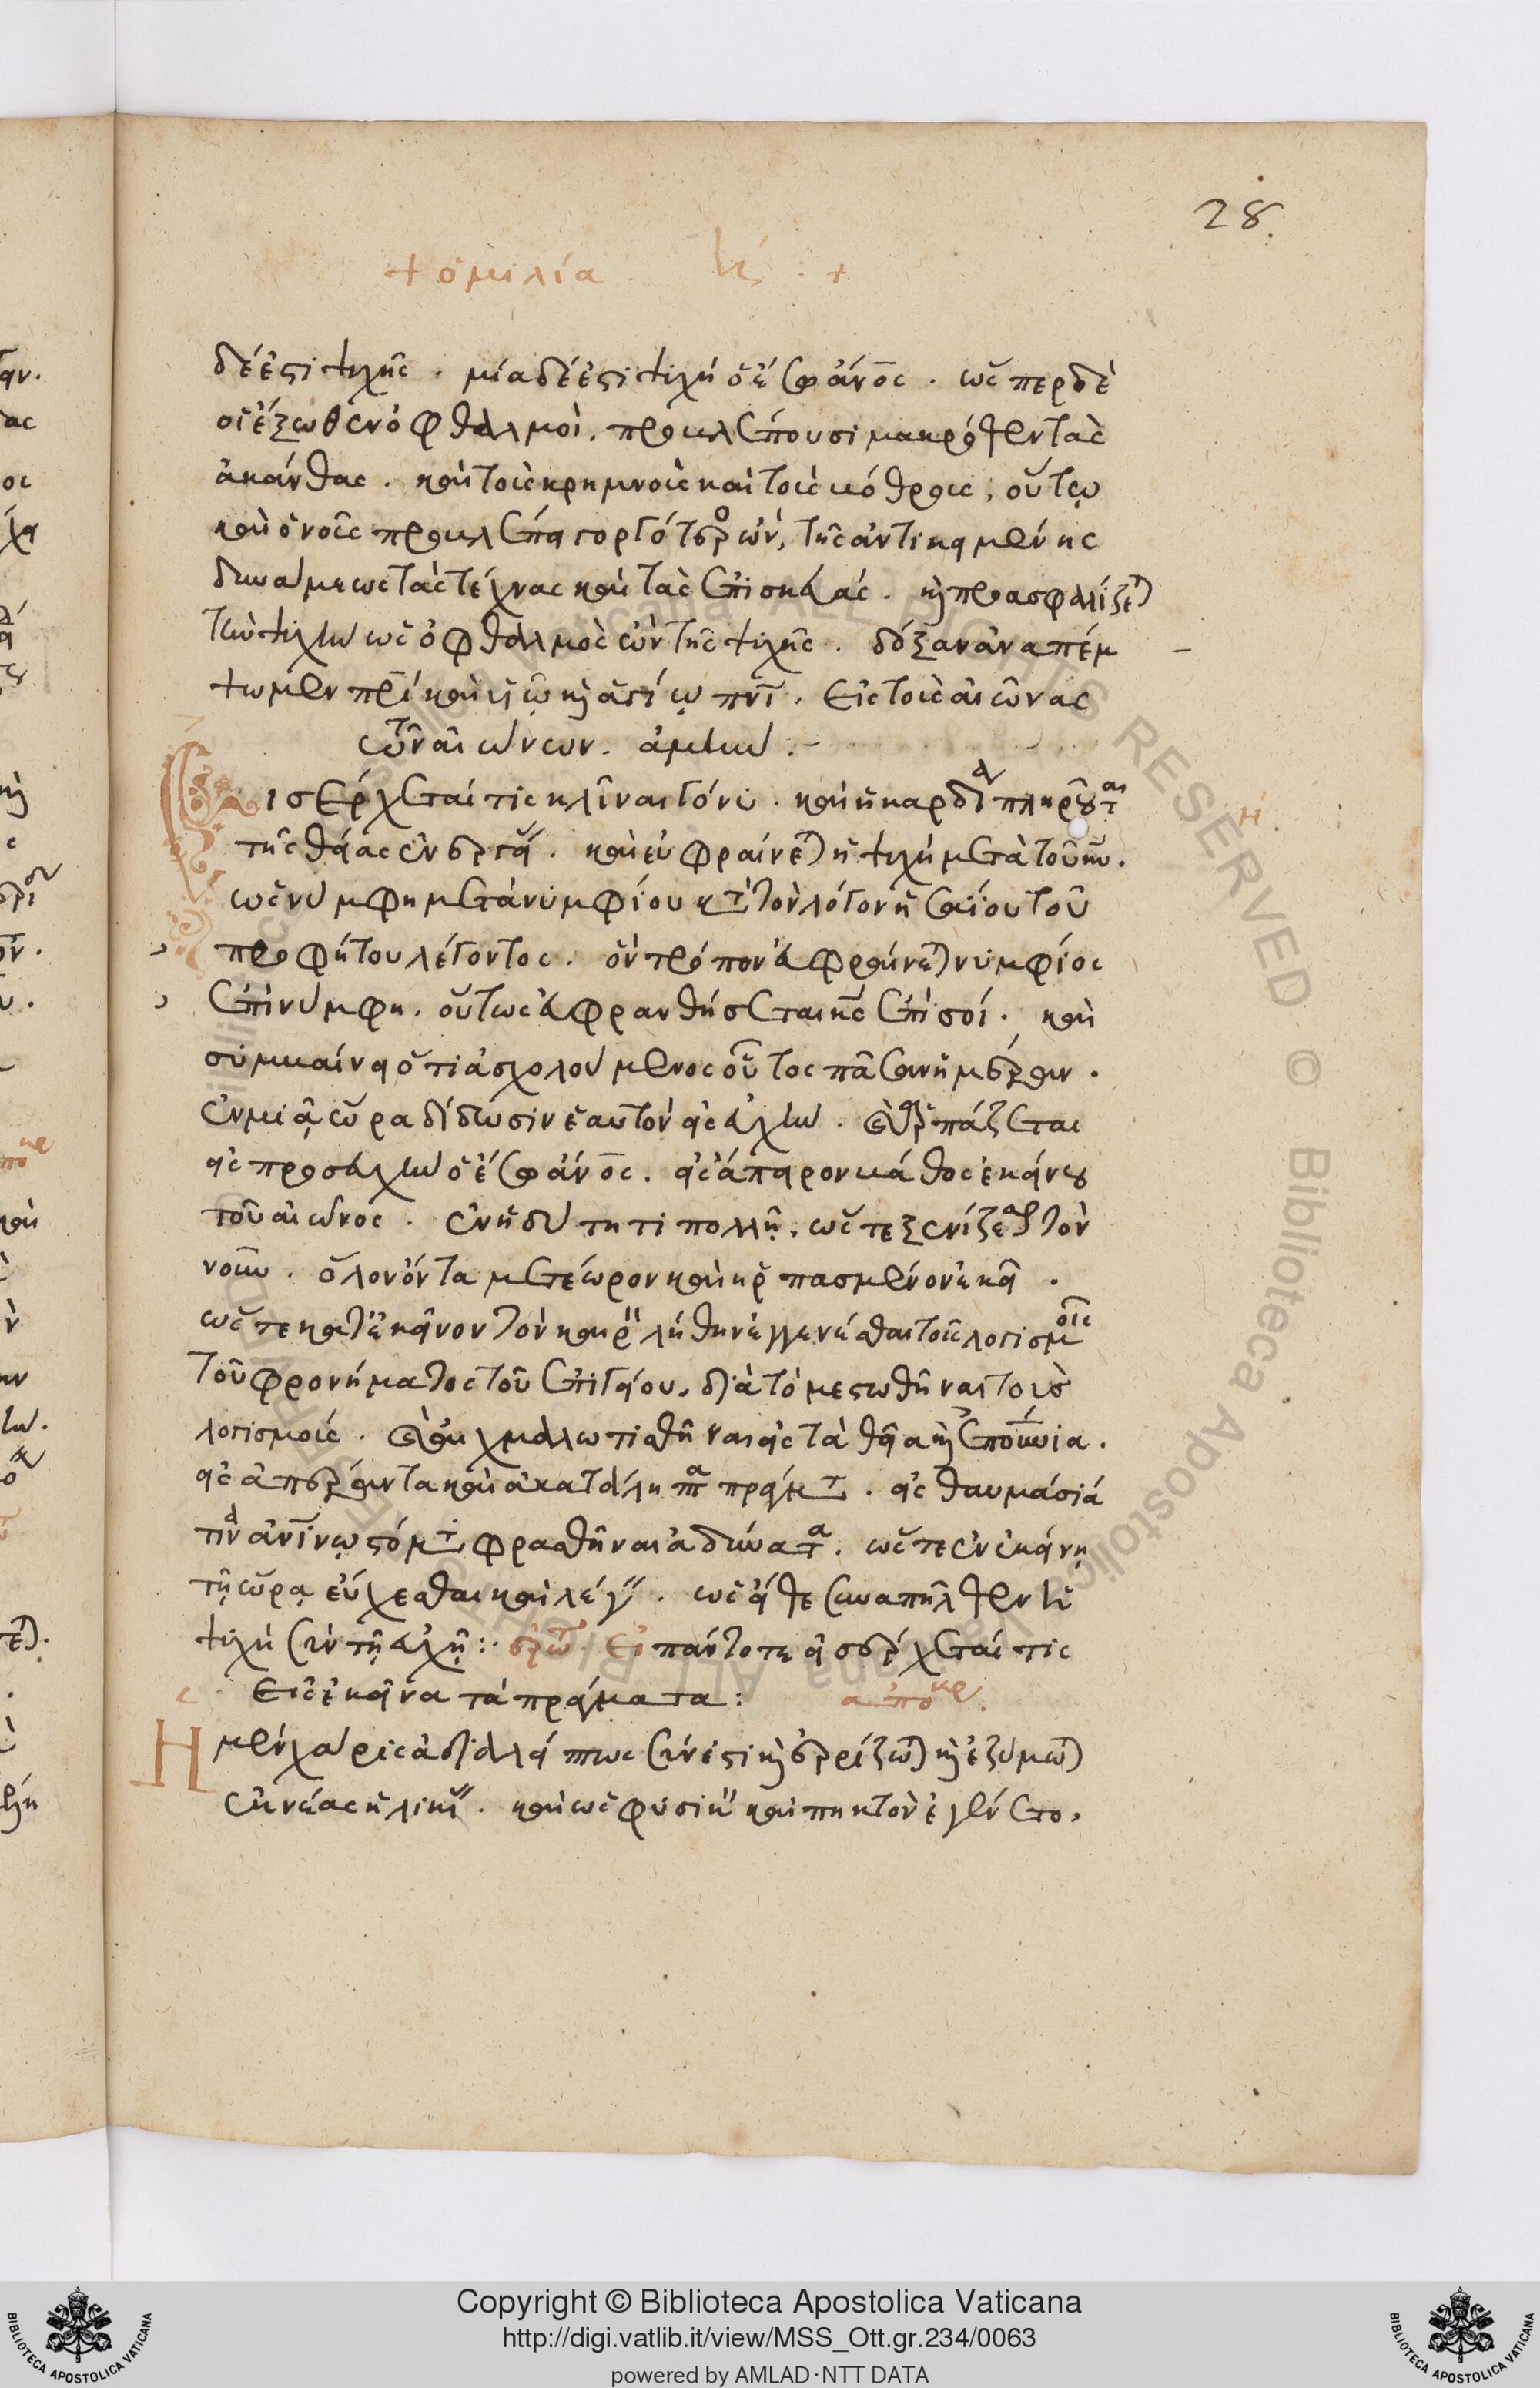 28.
+ ὁμιλία . η΄ : +
δέ ἐστι ψυχῆς . μία δέ ἐστι ψυχή ὁ ἔσω ἄνος . ὥσπερ δὲ
οἱ ἔξωθεν ὀφθαλμοὶ, προβλέπουσι μακρόθεν τὰς
ἀκάνθας . καὶ τοὺς κρημνοὺς καὶ τοὺς βόθρους, οὕτω
καὶ ὁ νοῦς προβλέπει γοργότερος ὤν, τῆς ἀντικειμένης
δυνάμεως τὰς τέχνας καὶ τὰς ἐπισκευάς . καὶ προασφαλίζεται
τὴν ψυχὴν ὡς ὀφθαλμὸς ὢν τῆς ψυχῆς . δόξαν ἀναπέμ
ψωμεν πρὶ καὶ υἱῷ καὶ ἁγίῳ πνι . εἰς τοὺς αἰῶνας
τῶν αἰώνων . ἀμήν :-
Εἰσέρχεταί τις κλῖναι γόνυ . καὶ ἡ καρδία πληροῦται
η΄.
τῆς θείας ἐνεργείας . καὶ εὐφραίνεται ἡ ψυχή μετὰ τοῦ κυ .
ὡς νύμφη μετὰ νυμφίου κατὰ τὸν λόγον ἡσαΐου τοῦ
προφήτου λέγοντος . ὃν τρόπον εὐφραίνεται νυμφίος
ἐπὶ νύμφη . οὕτως εὐφρανθήσεται κς ἐπὶ σοί . καὶ
συμβαίνει ὅτι ἀσχολούμενος οὗτος πᾶσαν ἡμέραν .
ἐν μιᾷ ὥρα δίδωσιν ἑαυτὸν εἰς εὐχὴν . καὶ ἁρπάζεται
εἰς προσευχὴν ὁ ἔσω ἄνος . εἰς ἄπειρον βάθος ἐκείνου
τοῦ αἰῶνος . ἐν ἡδύτητι πολλῇ . ὥστε ξενίζεσθαι τὸν
νοῦν . ὅλον ὄντα μετέωρον καὶ ἡρπασμένον ἐκεῖ .
ὥστε κατ' ἐκεῖνον τὸν καιρὸν λήθην ἐγγενέσθαι τοῖς λογισμοῖς
τοῦ φρονήματος τοῦ ἐπιγείου, διὰ τὸ μεστωθῆναι τοὺς
λογισμούς . καὶ αἰχμαλωτισθῆναι εἰς τὰ θεῖα καὶ ἐπουράνια .
εἰς ἀπέραντα καὶ ἀκατάληπτα πράγματα . εἰς θαυμάσιά
τινα ἀνίνω στόματι φρασθῆναι ἀδύνατα . ὥστε ἐν ἐκείνῃ
τῇ ὥρᾳ εὔχεσθαι καὶ λέγειν . ὡς εἴθε συναπῆλθεν ἡ
ψυχή σὺν τῇ εὐχῇ :· ἐρώτ. Εἰ πάντοτε εἰσέρχεταί τις
εἰς ἐκεῖνα τὰ πράγματα : ἀπόκρ.
Ἡ μὲν χάρις ἀδιαλείπτως σύνεστι καὶ ἐρρίζωται καὶ ἐζύμωται
ἐκ νέας ἡλικίας . καὶ ὡς φυσικὸν καὶ πηκτὸν ἐγένετο,
Copyright © Biblioteca Apostolica Vaticana
http://digi.vatlib.it/view/MSS_Ott.gr.234/0063
powered by AMLAD·NTT DATA
BIBLIOTECA APOSTOLICA VATICANA
BIBLIOTECA APOSTOLICA VATICANA